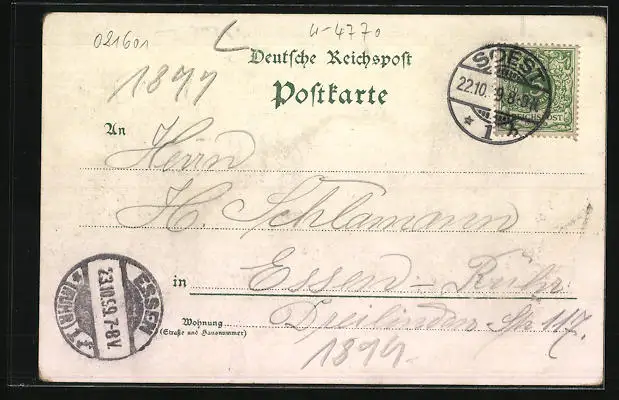 021601
4-4770
Deutsche Reichspost
1899
Postkarte
SOEST
22.10.99.8-9N
* 1 h
REICHSPOST
An
Herrn
H. Schlamann
in Essen-Ruhr
Wohnung Dreilinden-Str 117.
(Straße und Hausnummer)
1899
ESSEN
23.10.99.7-8V.
* (RUHR) 1 f